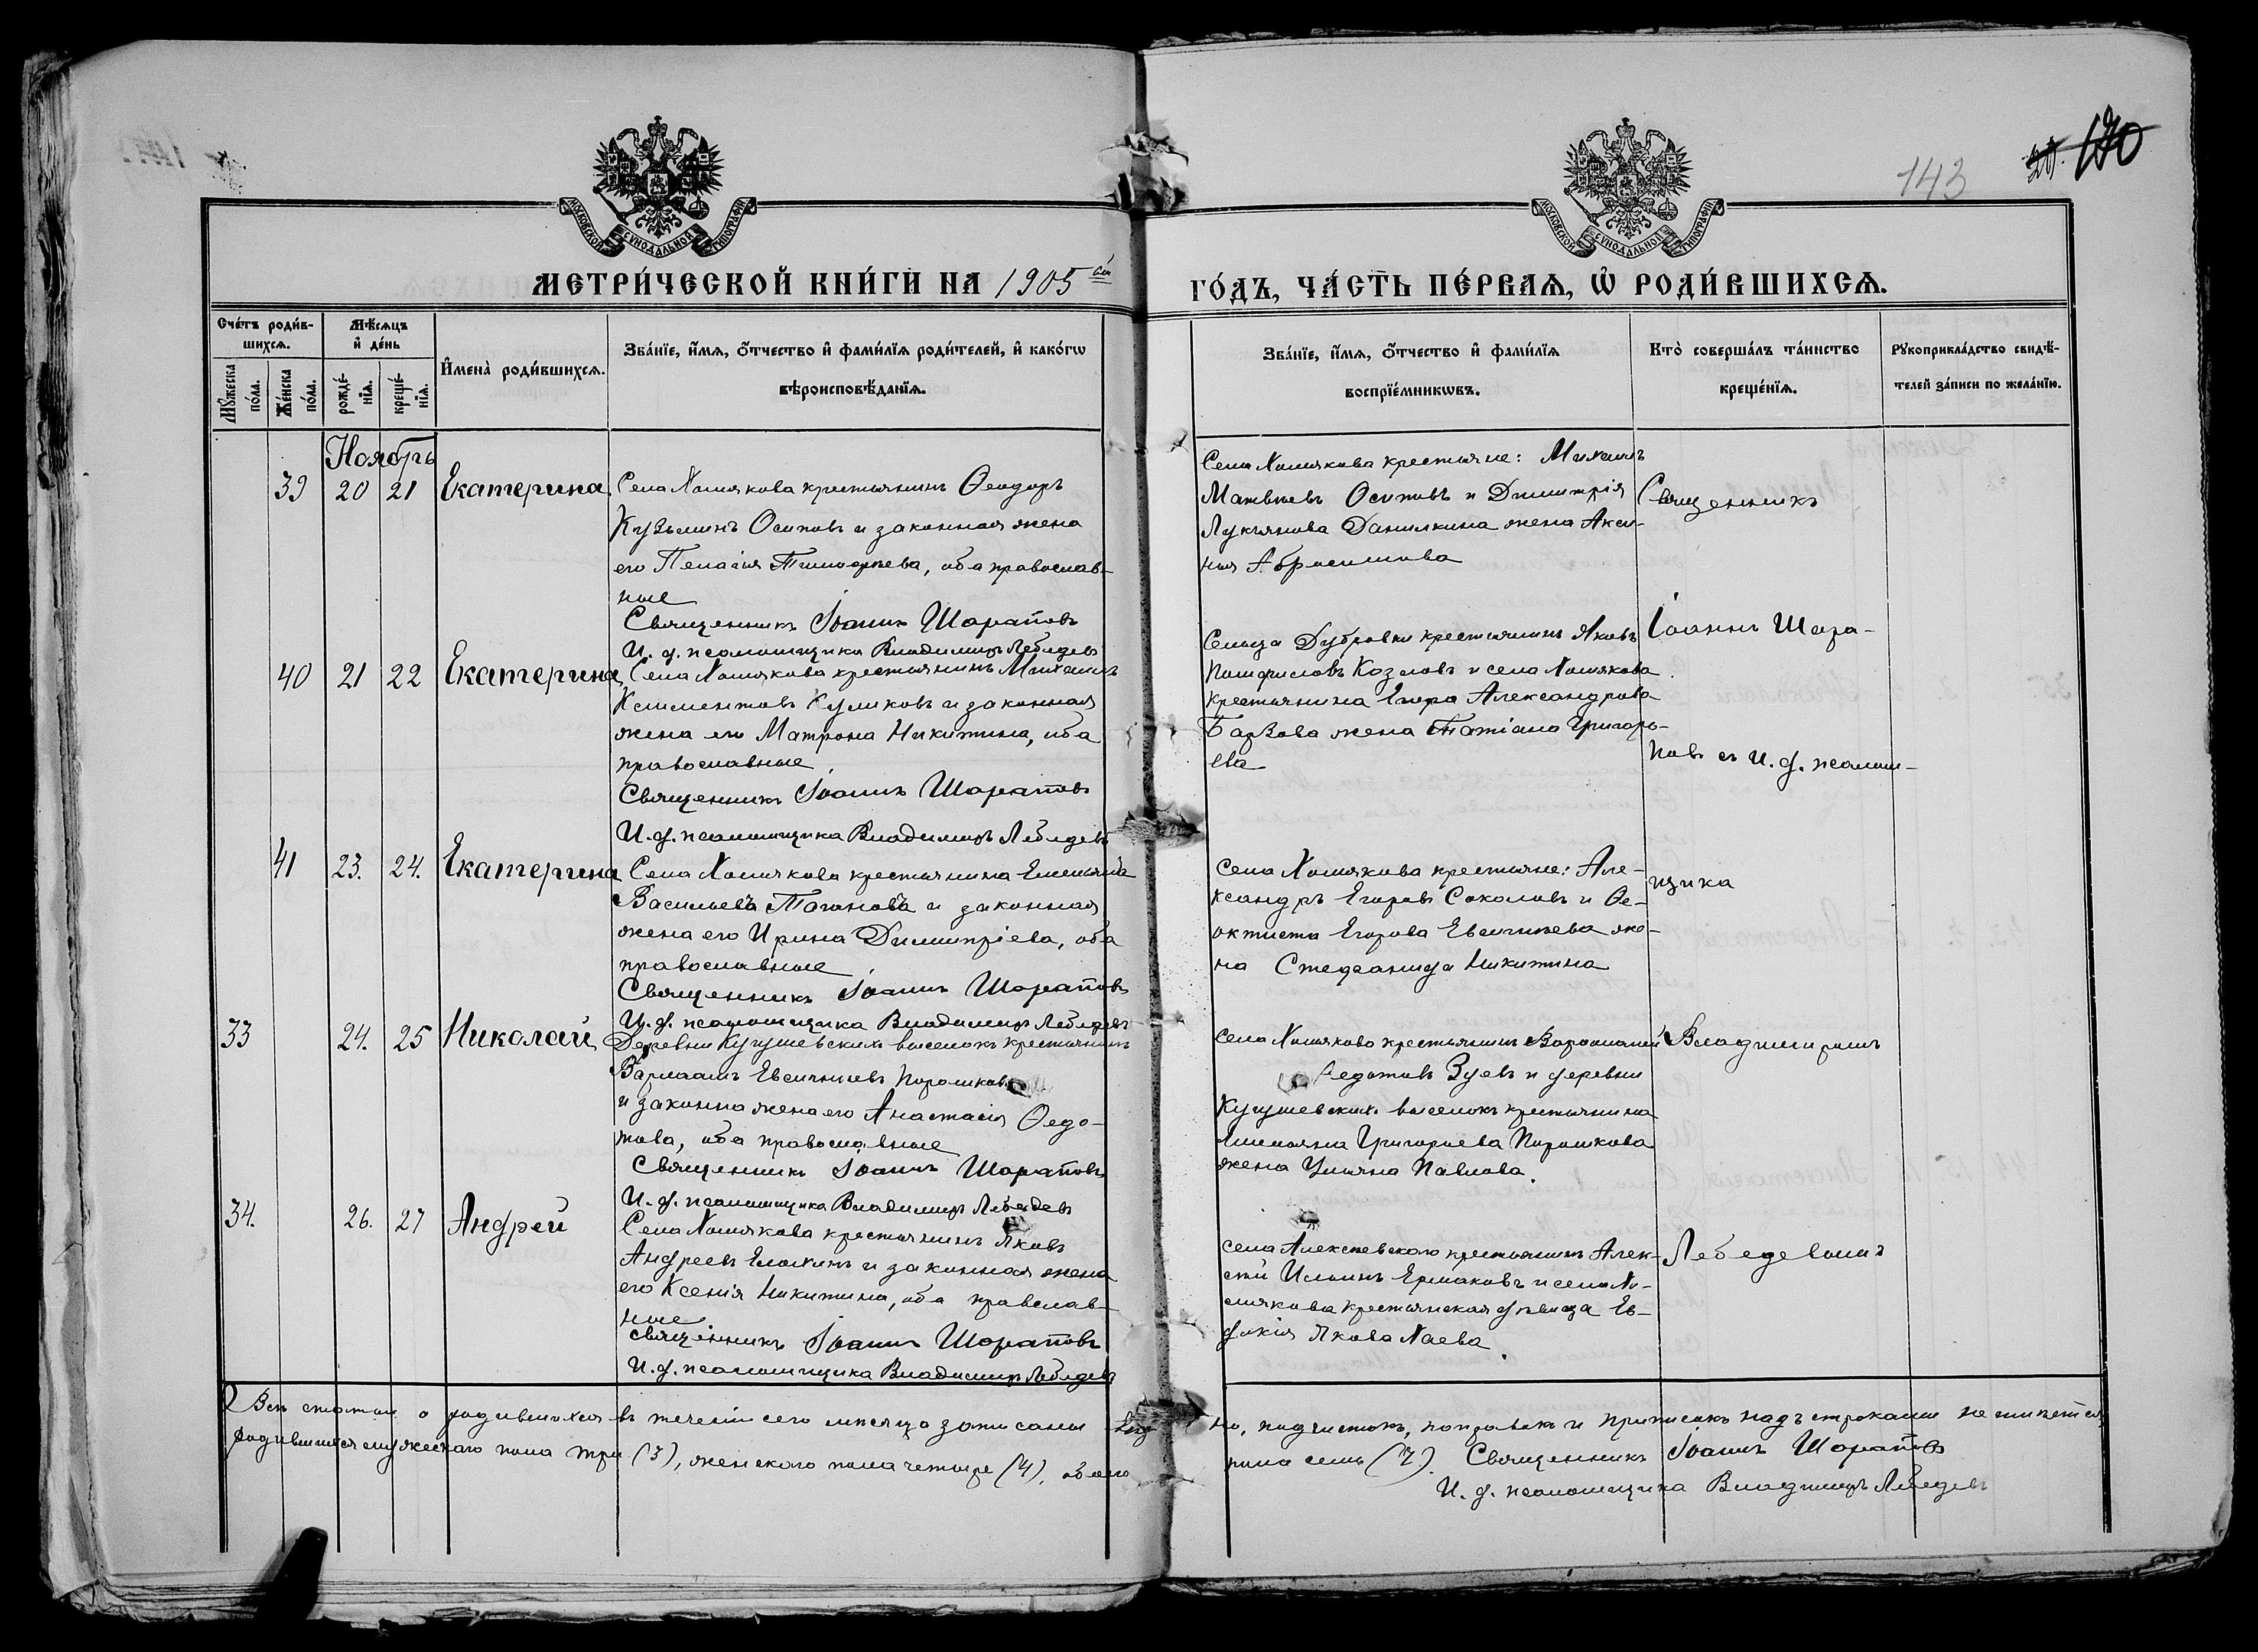 143
120
МОСКОВСКОЙ СУНОДАЛЬНОЙ ТИПОГРАФІИ
МОСКОВСКОЙ СУНОДАЛЬНОЙ ТИПОГРАФІИ
МЕТРИ́ЧЕСКОЙ КНИ́ГИ НА 1905 ГО́ДЪ, ЧА́СТЬ ПЕ́РВАѦ, Ѡ҆ РОДИ́ВШИХСѦ.
Сче́тъ роди́в-
шихсѧ.
Мꙋ́жеска по́ла.
Же́нска по́ла.
Мѣ́сѧцъ
и҆ де́нь
рожде́-
нїѧ.
креще́-
нїѧ.
И҆мена̀ роди́вшихсѧ.
Зва́нїе, и҆́мѧ, ѻ҆́тчество и҆ фами́лїѧ роди́телей, и҆ како́гѡ
вѣроисповѣ́данїѧ.
Зва́нїе, и҆́мѧ, ѻ҆́тчество и҆ фами́лїѧ
воспрїе́мникѡвъ.
Кто̀ соверша́лъ та́инство
креще́нїѧ.
Рꙋкоприкла́дство свидѣ́-
телей за́писи по жела́нїю.
Ноябрь
39 20 21 Екатерина
Села Хомякова крестьянинъ Ѳеодоръ
Кузьминъ Осиповъ и законная жена
его Пелагія Тимофѣева, оба православ-
ные
Священникъ Іоаннъ Шараповъ
И. д. псаломщика Владимиръ Лебедевъ
Села Хомякова крестьяне: Михаилъ
Матвѣевъ Осиповъ и Димитрія
Лукьянова Данилкина жена Акси-
нія Абросимова
40 21 22 Екатерина
Села Хомякова крестьянинъ Михаилъ
Климентовъ Куликовъ и законная
жена его Матрона Никитина, оба
православные
Священникъ Іоаннъ Шараповъ
И. д. псаломщика Владимиръ Лебедевъ
Сельца Дубровки крестьянинъ Яковъ
Памфиловъ Козловъ и села Хомякова
крестьянина Егора Александрова
жена Татіана Григорь-
ева
41 23. 24. Екатерина
Села Хомякова крестьянина Емельяна
Васильева и законная
жена его Ирина Димитріева, оба
православные
Священникъ Іоаннъ Шараповъ
И. д. псаломщика Владимиръ Лебедевъ
села Хомякова крестьяне: Але-
ксандръ Егоровъ Соколовъ и Ѳе-
октиста Егорова Евсигнѣева же-
на Стефанида Никитина
33 24. 25 Николай
Деревни Кугушевскихъ выселокъ крестьянинъ
Варлаамъ Евсигнѣевъ Порошковъ
и законна жена его Анастасія Ѳедо-
това, оба православные
Священникъ Іоаннъ Шараповъ
И. д. псаломщика Владимиръ Лебедевъ
села Хомяково крестьянинъ
Ѳедотовъ Зуевъ и деревни
Кугушевскихъ выселокъ крестьянина
Емельяна Григорьева Порошкова
жена Ульяна Павлова.
34. 26. 27 Андрей
Села Хомякова крестьянинъ Яковъ
Андреевъ Елохинъ и законная жена
его Ксенія Никитина, оба православ-
ные
священникъ Іоаннъ Шараповъ
И. д. псаломщика Владимиръ Лебедевъ
села Алексѣевскаго крестьянинъ Алек-
сѣй Ильинъ Ермаковъ и села Хо-
мякова крестьянская дѣвица Ев-
докія Якова Лаева.
Священникъ
Іоаннъ Шара-
повъ съ и. д. псалом-
щика
Владимиромъ
Лебедевымъ
Всѣ статьи о родившихся въ теченіи сего мѣсяца записаны вѣр
но, подчистокъ, поправокъ и приписокъ надъ строками не имѣется
родившихся мужескаго пола три (3), женскаго пола четыре (4), обоего
пола семь (7). Священникъ Іоаннъ Шараповъ
И. д. псаломщика Владимиръ Лебедевъ